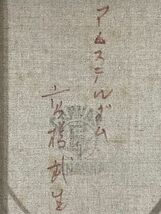 アムステルダム
高橋武生